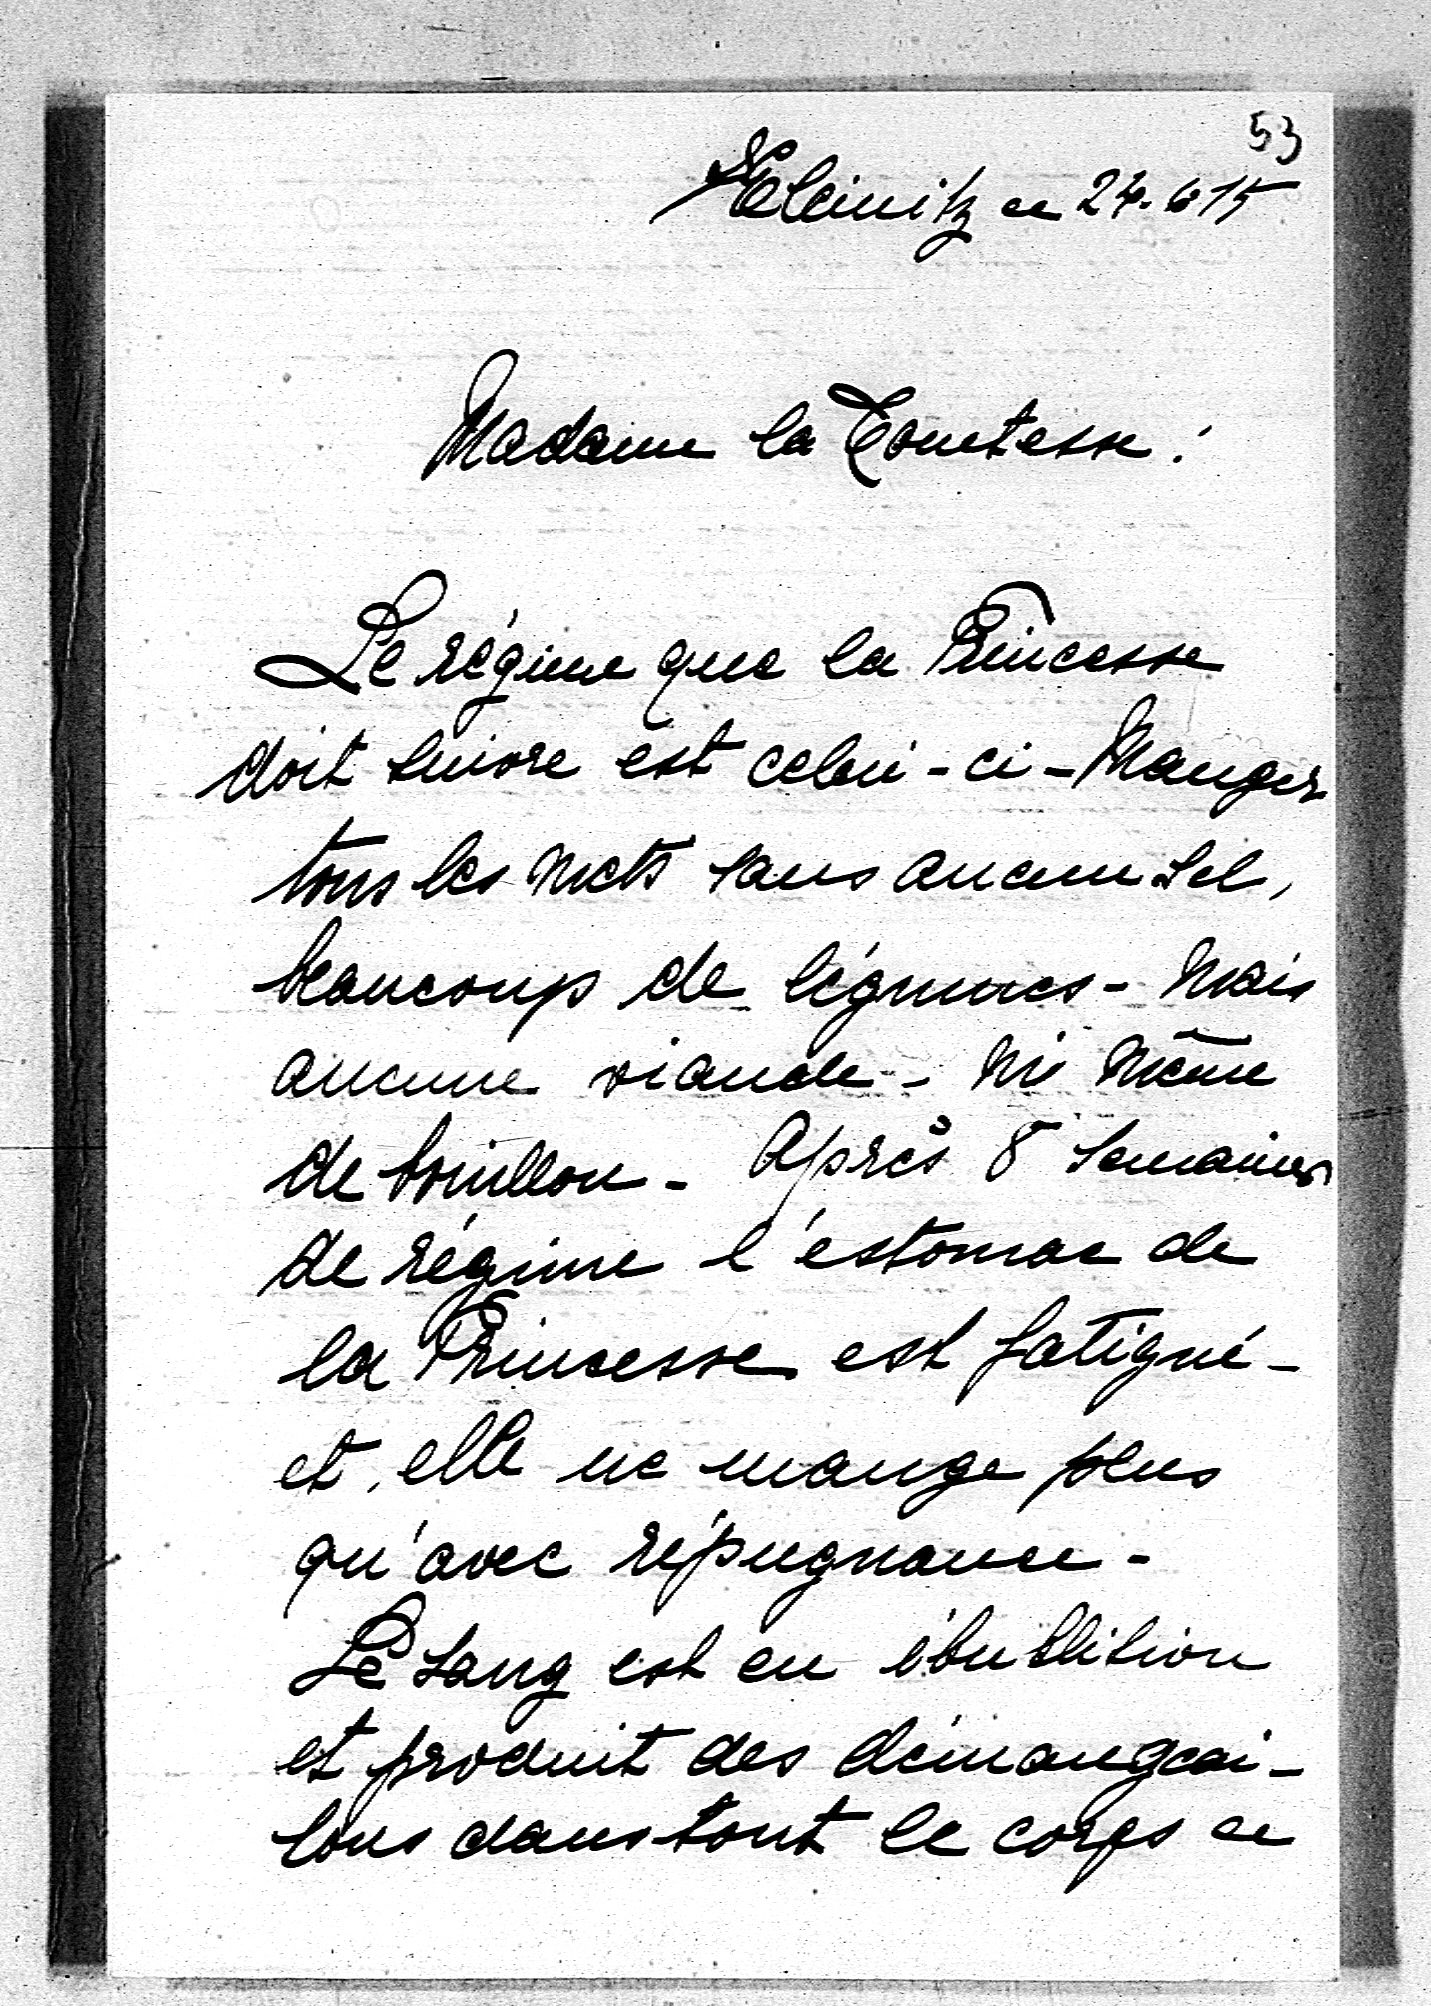 53
Kleinitz ce 24. 6 15
Madame la Comtesse!
Le régime que la Princesse
doit suivre est celui-ci - Manger
tous les mets sans aucun sel,
beaucoup de légumes - mais
aucune viande - ni même
de bouillon - Après 8 semaines
de régime l'estomac de
la Princesse est fatigué -
et elle ne mange plus
qu'avec répugnance -
Le sang est en ébullition
et produit des démangeai-
sons dans tout le corps ce